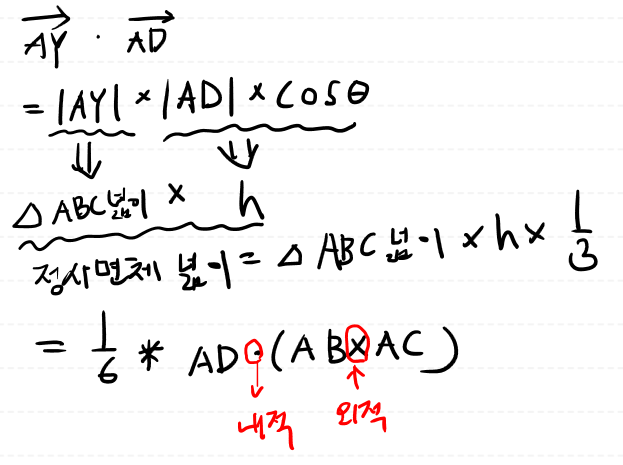 AY · AD
= |AY| × |AD| × cosθ
⇓ ⇓
△ABC넓이 × h
정사면체 넓이 = △ABC넓이 × h × 1/3
= 1/6 * AD·(AB×AC)
내적 외적